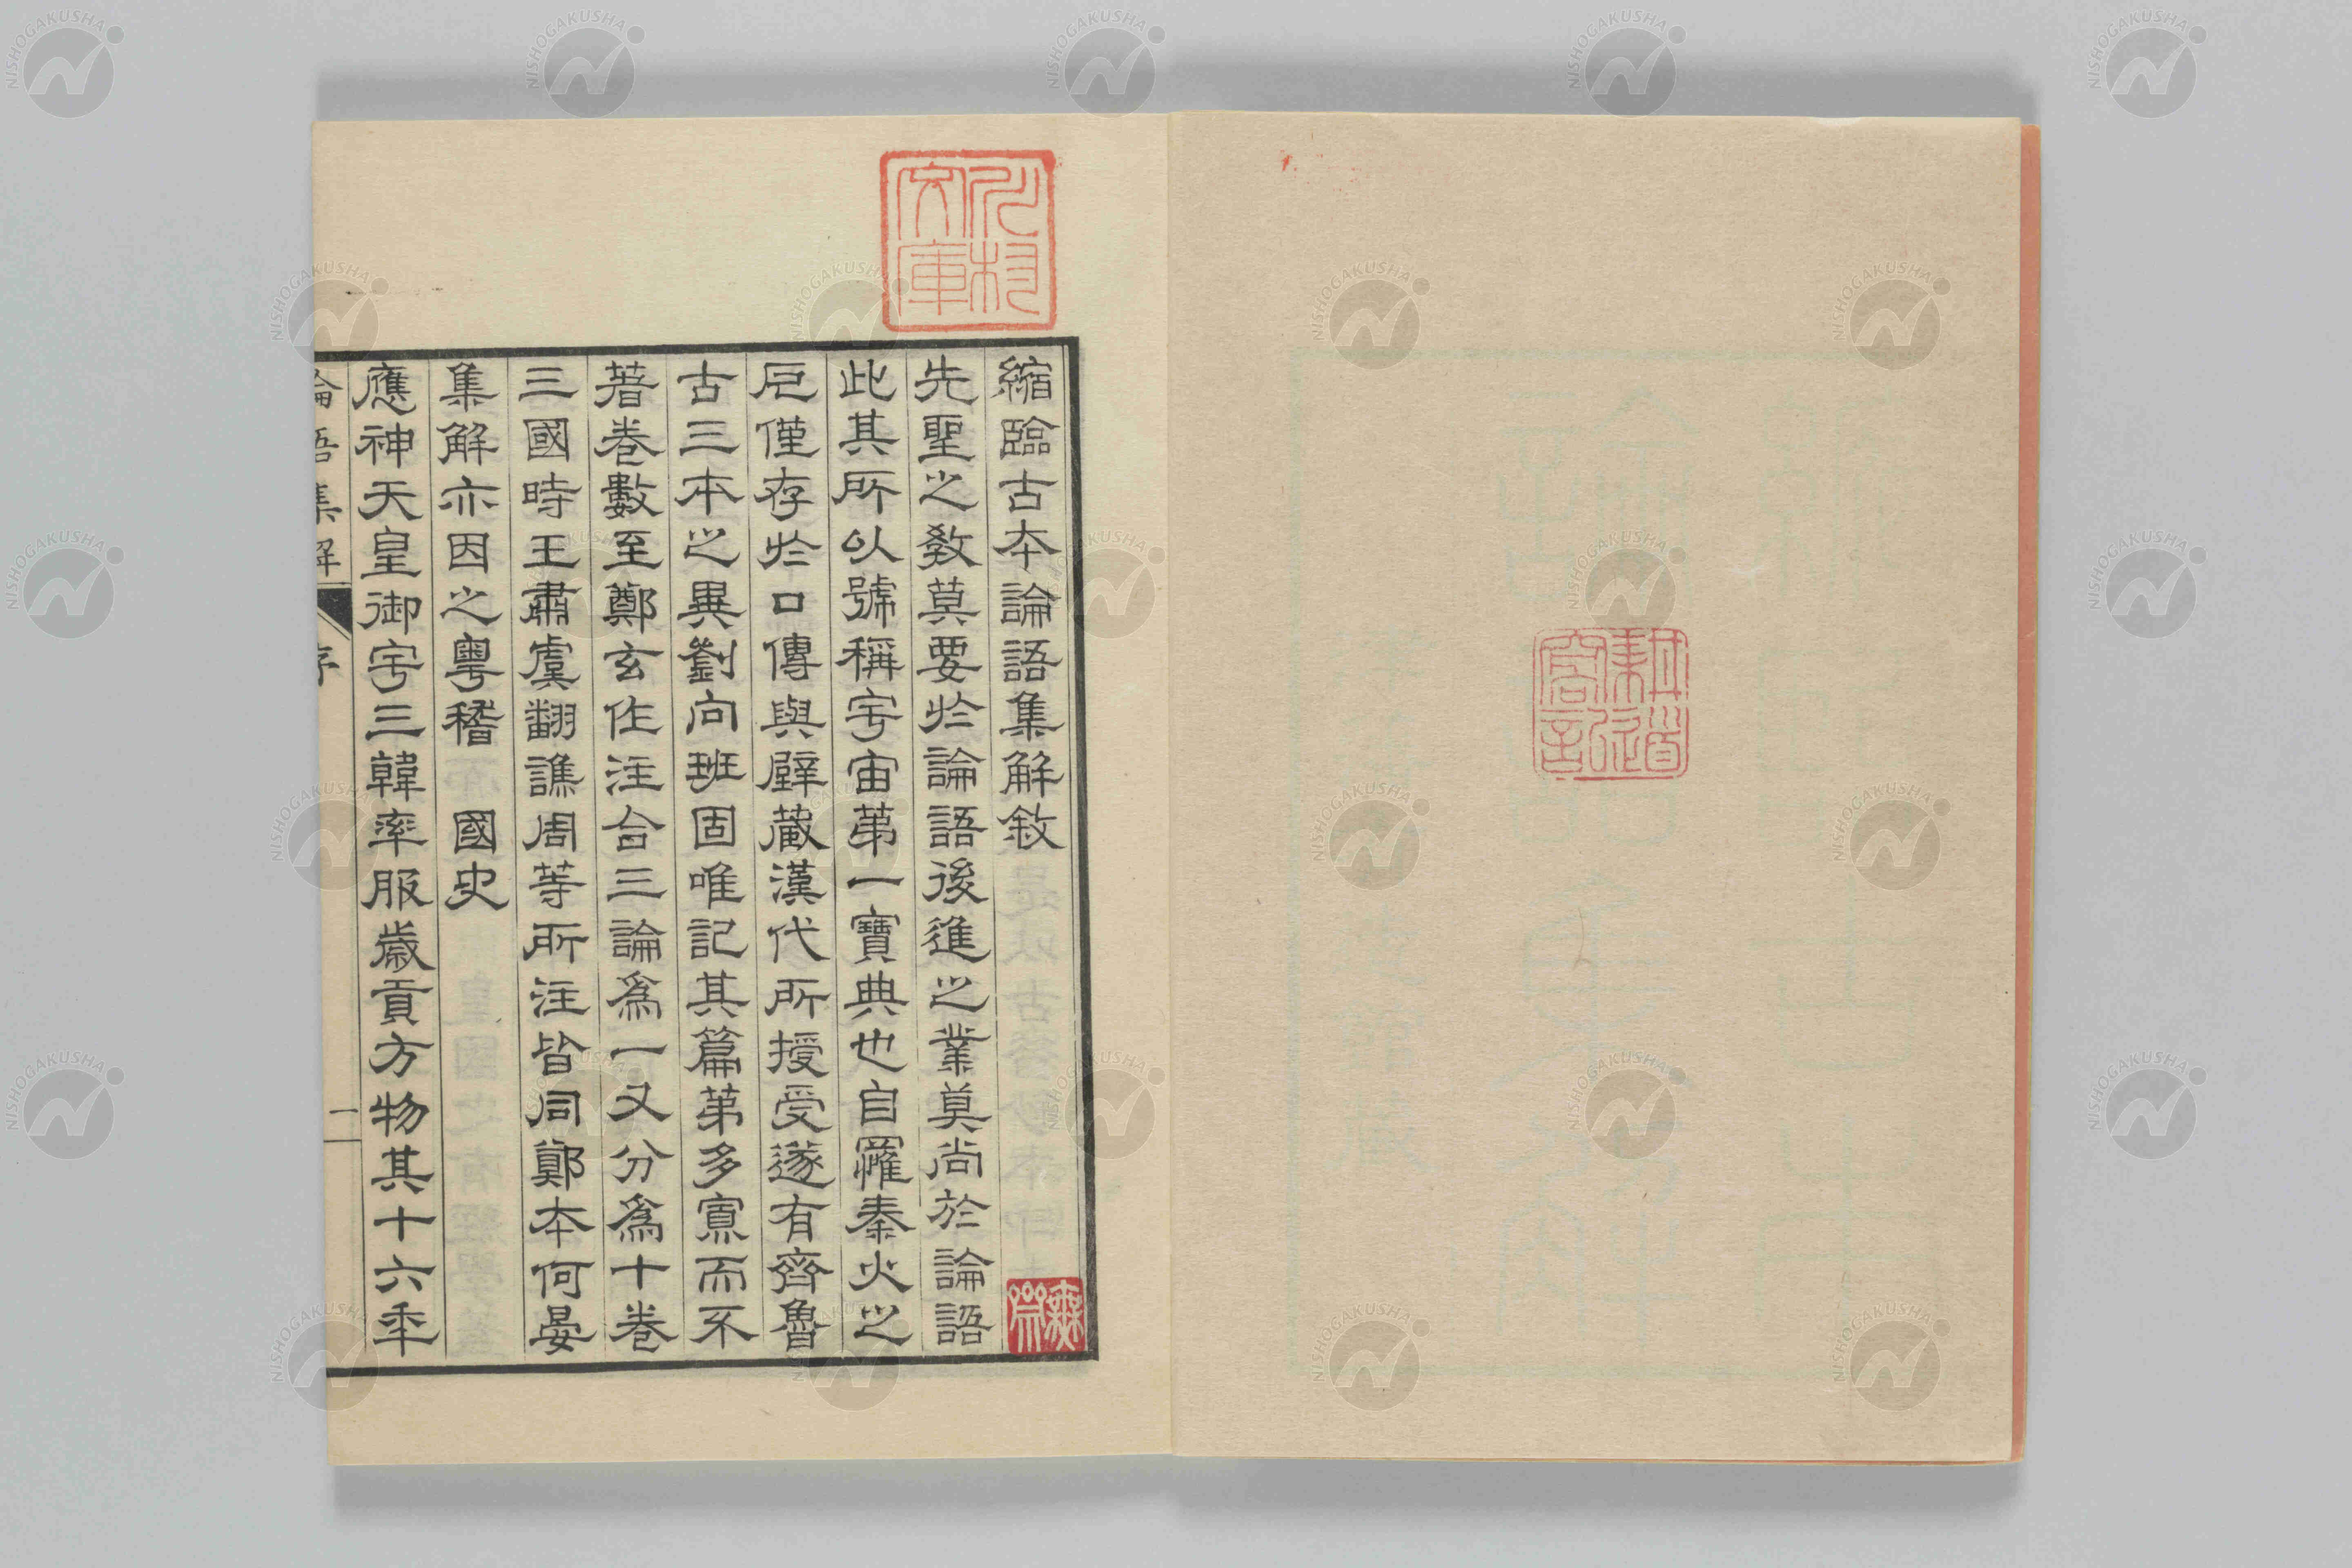 縮臨古本論語集解敘
先聖之教莫要於論語後進之業莫尚於論語
此其所以號稱宇宙第一寶典也自罹秦火之
厄僅存於口傳與壁藏漢代所授受遂有齊魯
古三本之異劉向班固唯記其篇第多寡而不
著卷數至鄭玄作注合三論為一又分為十卷
三國時王肅虞翻譙周等所注皆同鄭本何晏
集解亦因之粵稽 國史
應神天皇御宇三韓率服歲貢方物其十六年
論語集解 序 一
文庫
NISHOGAKUSHA